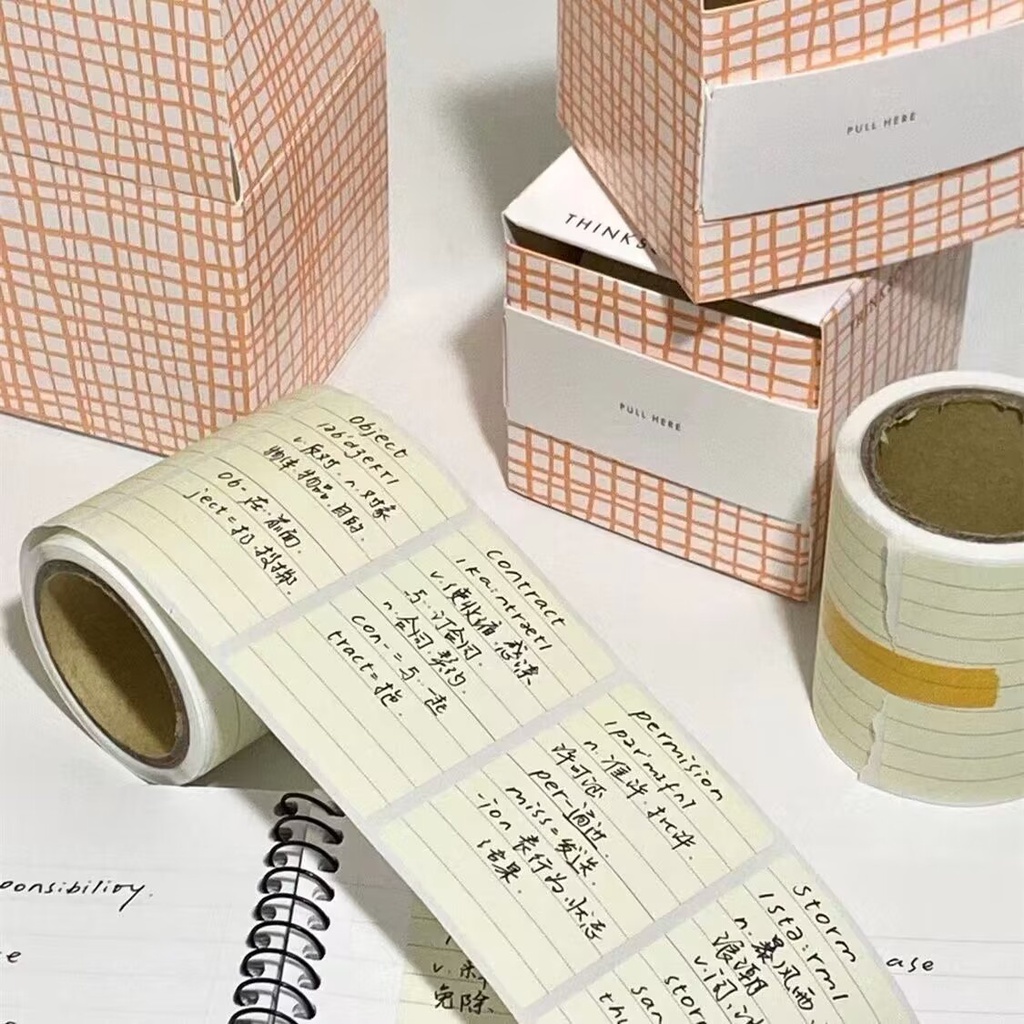 PULL HERE
THINKS
PULL HERE
object
v.反对. n.对象
物体.物品.目的.
ob-在.前面.
ject=扔.投掷.
contract
v.使收缩.感染
与..订合同.
n.合同.契约.
con-=与.一起
tract=拖.
permision
n.准许.批评.
许可证
per-通过.
miss=发送.
-ion 表行为.状态
结果.
storm
n.暴风雨.
浪潮
v.闯.
ponsibility.
e
v.
免除.
ase